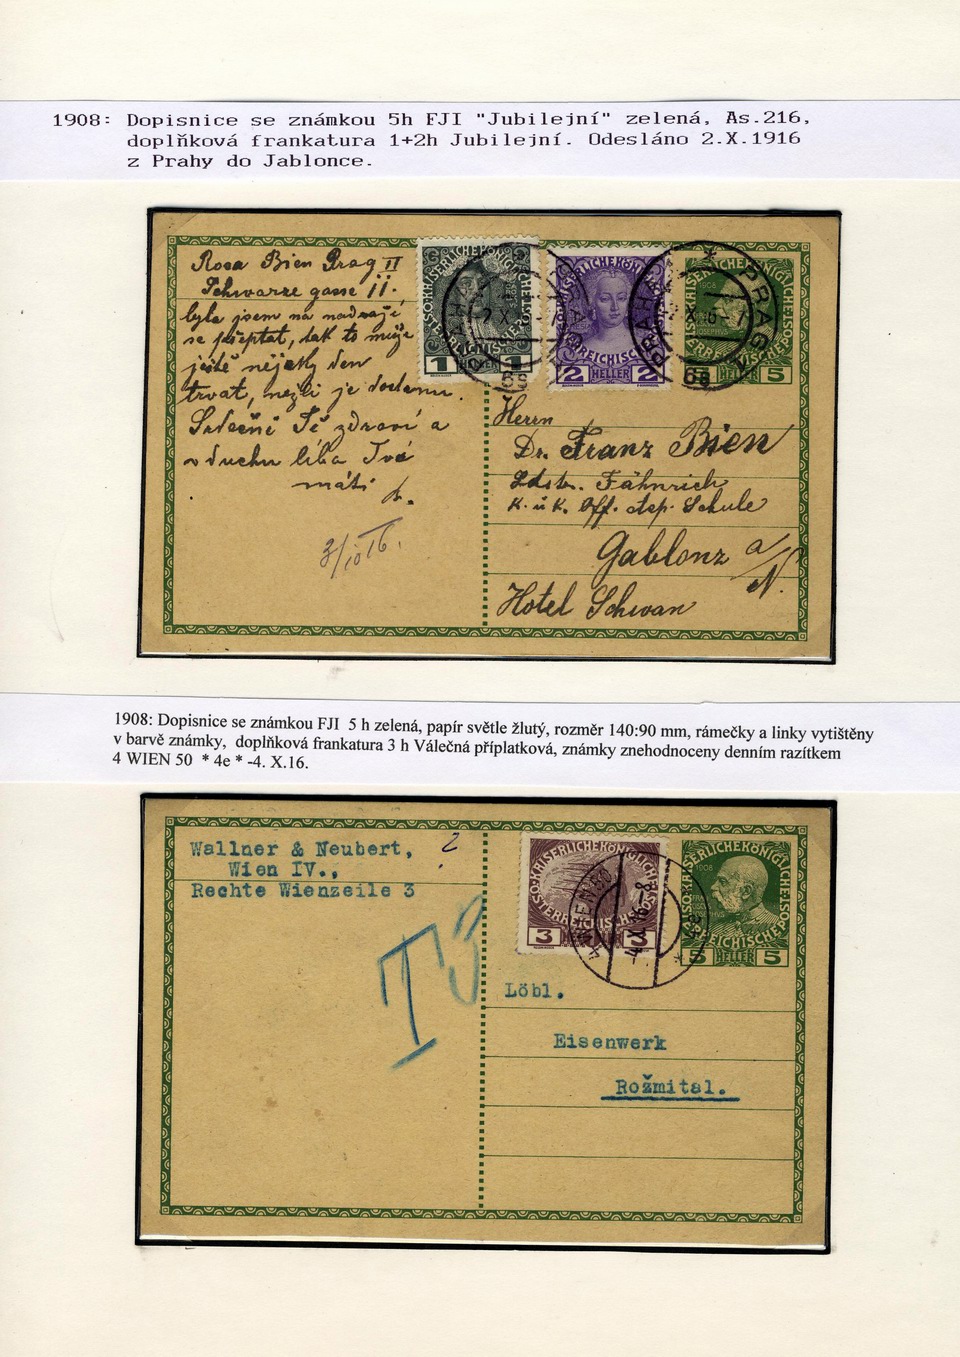 1908: Dopisnice se známkou 5h FJI "Jubilejní" zelená, As.216,
doplňková frankatura 1+2h Jubilejní. Odesláno 2.X.1916
z Prahy do Jablonce.
Rosa Bien Prag II
Schwarze gasse 11.
byla jsem na nádraží
se přeptat, tak to může
ještě nějaký den
trvat, nežli je dostanu.
Srdečně Tě zdraví a
v duchu líbá Tvá
máti
3/10 16.
1 HELLER 1
2 HELLER 2
5 HELLER 5
PRAG
Herrn
Dr. Franz Bien
Ldst. Fähnrich
k. u k. Off. Asp. Schule
Gablonz a/N.
Hotel Schwan
1908: Dopisnice se známkou FJI 5 h zelená, papír světle žlutý, rozměr 140:90 mm, rámečky a linky vytištěny
v barvě známky, doplňková frankatura 3 h Válečná příplatková, známky znehodnoceny denním razítkem
4 WIEN 50 * 4e * -4. X.16.
Wallner & Neubert,
Wien IV.,
Rechte Wienzeile 3
?
T
3 3
4 WIEN 50
-4.X.16-8
1908
5 HELLER 5
Löbl.
Eisenwerk
Rožmital.